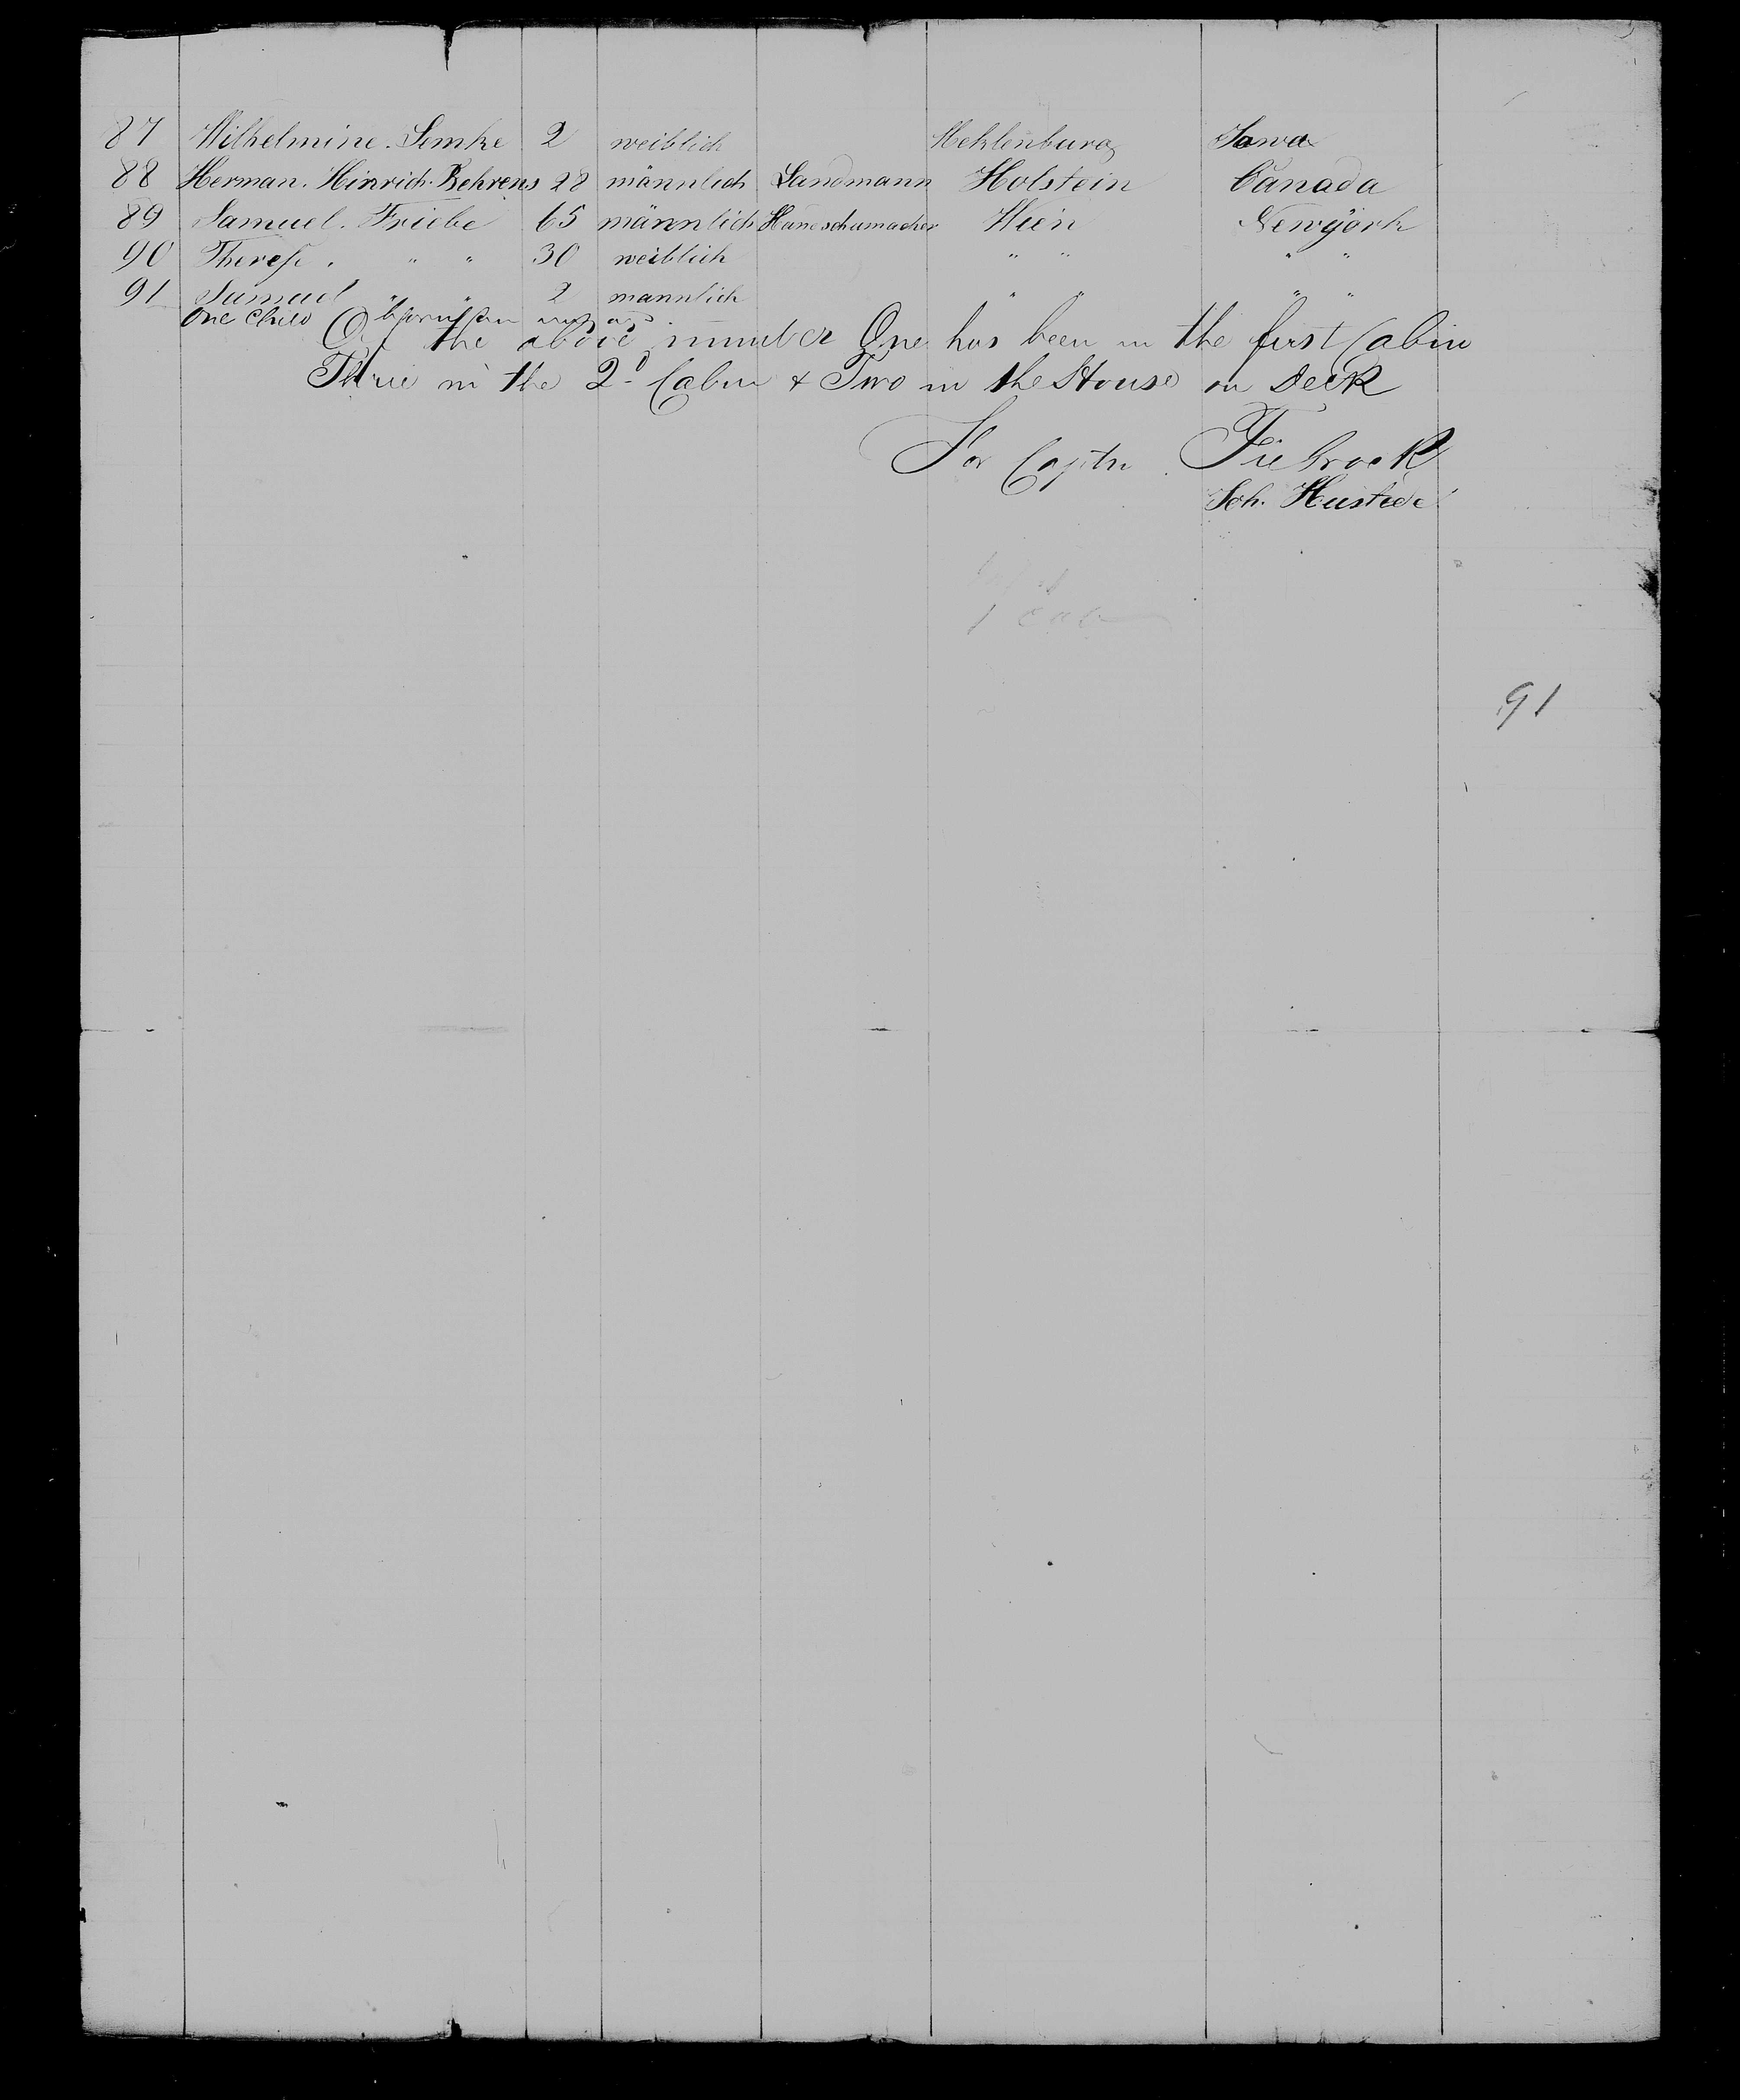 87 Wilhelmine. Semke 2 weiblich Mehlenburg Iowa
88 Herman. Hinrich. Behrens 28 männlich Landmann Holstein Canada
89 Samuel. Friebe 65 männlich Wien Newyork
90 Therese. " " 30 weiblich " " " "
91 Samuel " " 2 mannlich " " " "
One Child
Of the above number One has been in the first Cabin
Three in the 2d Cabin & Two in the House on Deck
For Captn Fiebrock
Joh. Hustede
1
91